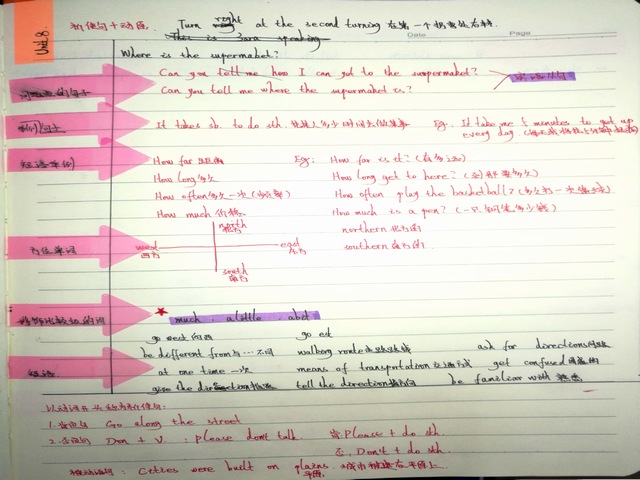 Unit 8.
祈使句+动词. Turn right at the second turning 在第一个拐弯处右转
This is Sara speaking
Date Page
Where is the supermaket?
Can you tell me how I can got to the suopermaket?
Can you tell me where the supermaket is?
宾语从句
句子
It takes sb. to do sth. 花某人多少时间去做某事 Eg: It take me 5 minutes to get up
every day
How far 距离 Eg: How far is it? (有多远)
How long 多久 How long get to here? (去)那要多久
How often 多久一次 (频率) How often plag the basketball? (多久打一次篮球)
How much 价格 How much is a pen? (一只钢笔多少钱)
north
北方
northern 北方的
方位单词
west
西方
east
东方
southern 南方的
south
南方
修饰比较级的词
much . a little . abit
go west 向西 go est
be different from 与…不同 walborg ronte ask for directions 问路
短语
at one time 一次 means of transprtation 交通方式 get confused 困惑的
give the direction 指路 tell the direction be familiar with 熟悉
以动词开头称为祈使句:
1. 肯定句 Go along the street
2. 否定句 Don + V. : please dont talk. 肯, Please + do sth.
否, Don't + do sth.
被动语词: Cities were built on plains. 城市被建在平原上.
平原.